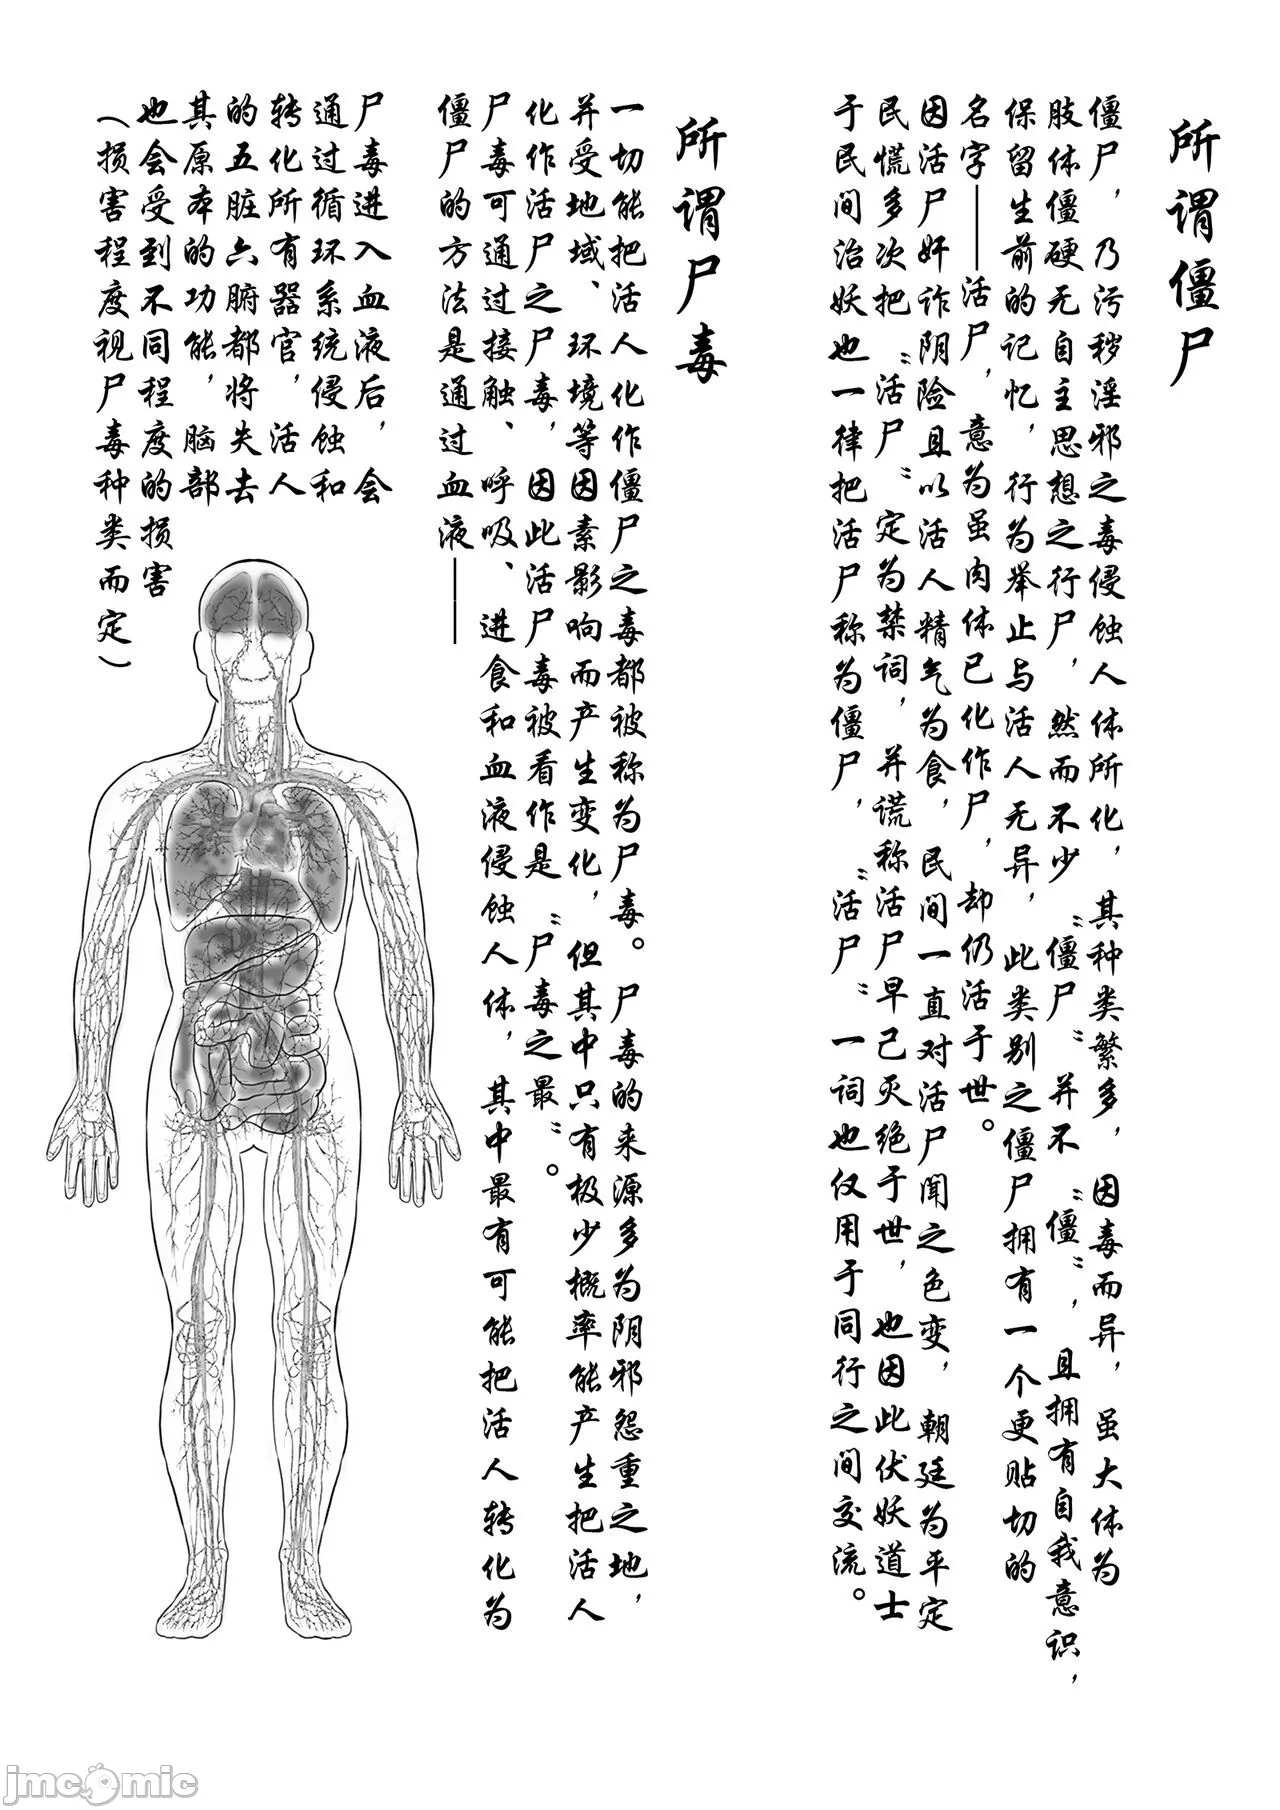 所谓僵尸
僵尸，乃污秽淫邪之毒侵蚀人体所化，其种类繁多，因毒而异，虽大体为
肢体僵硬无自主思想之行尸，然而不少“僵尸”并不“僵”，且拥有自我意识，
保留生前的记忆，行为举止与活人无异，此类别之僵尸拥有一个更贴切的
名字——活尸，意为虽肉体已化作尸，却仍活于世。
因活尸奸诈阴险且以活人精气为食，民间一直对活尸闻之色变，朝廷为平定
民慌多次把“活尸”定为禁词，并谎称活尸早已灭绝于世，也因此伏妖道士
于民间治妖也一律把活尸称为僵尸，“活尸”一词也仅用于同行之间交流。
所谓尸毒
一切能把活人化作僵尸之毒都被称为尸毒。尸毒的来源多为阴邪怨重之地，
并受地域、环境等因素影响而产生变化，但其中只有极少概率能产生把活人
化作活尸之尸毒，因此活尸毒被看作是“尸毒之最”。
尸毒可通过接触、呼吸、进食和血液侵蚀人体，其中最有可能把活人转化为
僵尸的方法是通过血液——
尸毒进入血液后，会
通过循环系统侵蚀和
转化所有器官，活人
的五脏六腑都将失去
其原本的功能，脑部
也会受到不同程度的损害
（损害程度视尸毒种类而定）
jmcomic